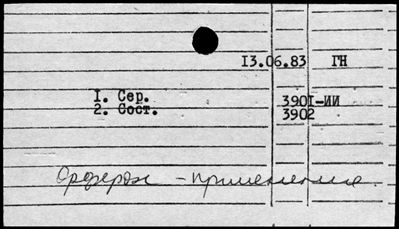 13.06.83 ГН
1. Сер. 3901-ИИ
2. Сост. 3902
- применение.